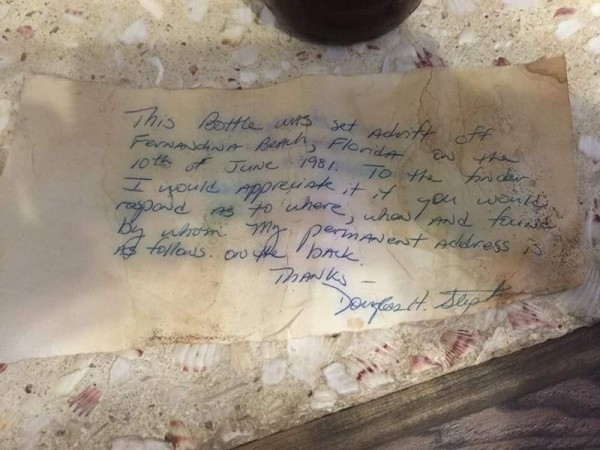 This Bottle was set adrift off
Fernandina Beach, Florida on the
10th of June 1981. To the finder
I would appreciate it if you would
respond as to where, when and found
by whom My permanent address is
As follows. on the back.
Thanks –
Douglas H.